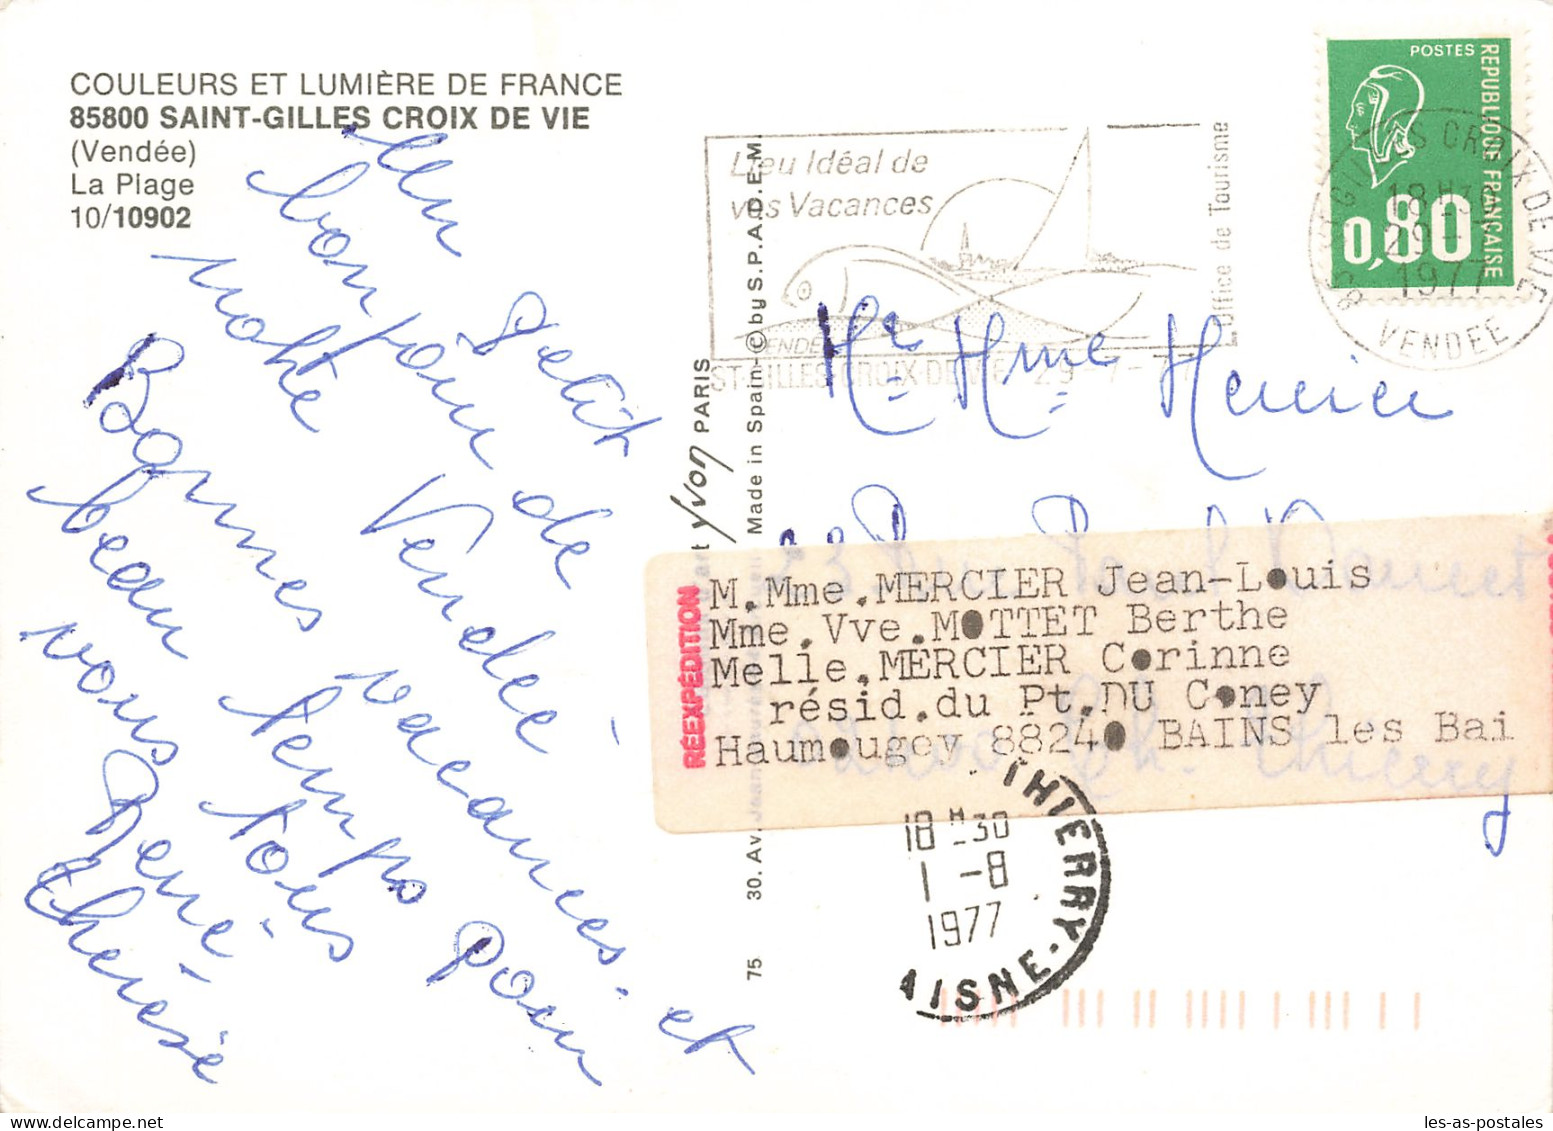 COULEURS ET LUMIÈRE DE FRANCE
85800 SAINT-GILLES CROIX DE VIE
(Vendée)
La Plage
10/10902
Un petit
bonjour de
notre Vendée -
Bonnes vacances - et
beau temps pour
vous tous
René -
Thérèse
yvon PARIS
Made in Spain - © by S.P.A.D.E.M.
75 30. Av. Jean
Lieu Idéal de
vos Vacances
Office de Tourisme
VENDEE
ST-GILLES-CROIX-DE-VIE 29-7-77
POSTES
REPUBLIQUE FRANÇAISE
0,80
ST GILLES CROIX DE VIE
18 H 30
29-7
1977
85 VENDEE
Mr. Mme Mercier
23 Rue Paul Doumer
02400 Ch. Thierry
RÉEXPÉDITION
M.Mme.MERCIER Jean-Louis
Mme.Vve.MOTTET Berthe
Melle.MERCIER Corinne
résid.du Pt.DU Coney
Haumougey 88240 BAINS les Bai
THIERRY
18 H 30
1-8
1977
AISNE
les-as-postales